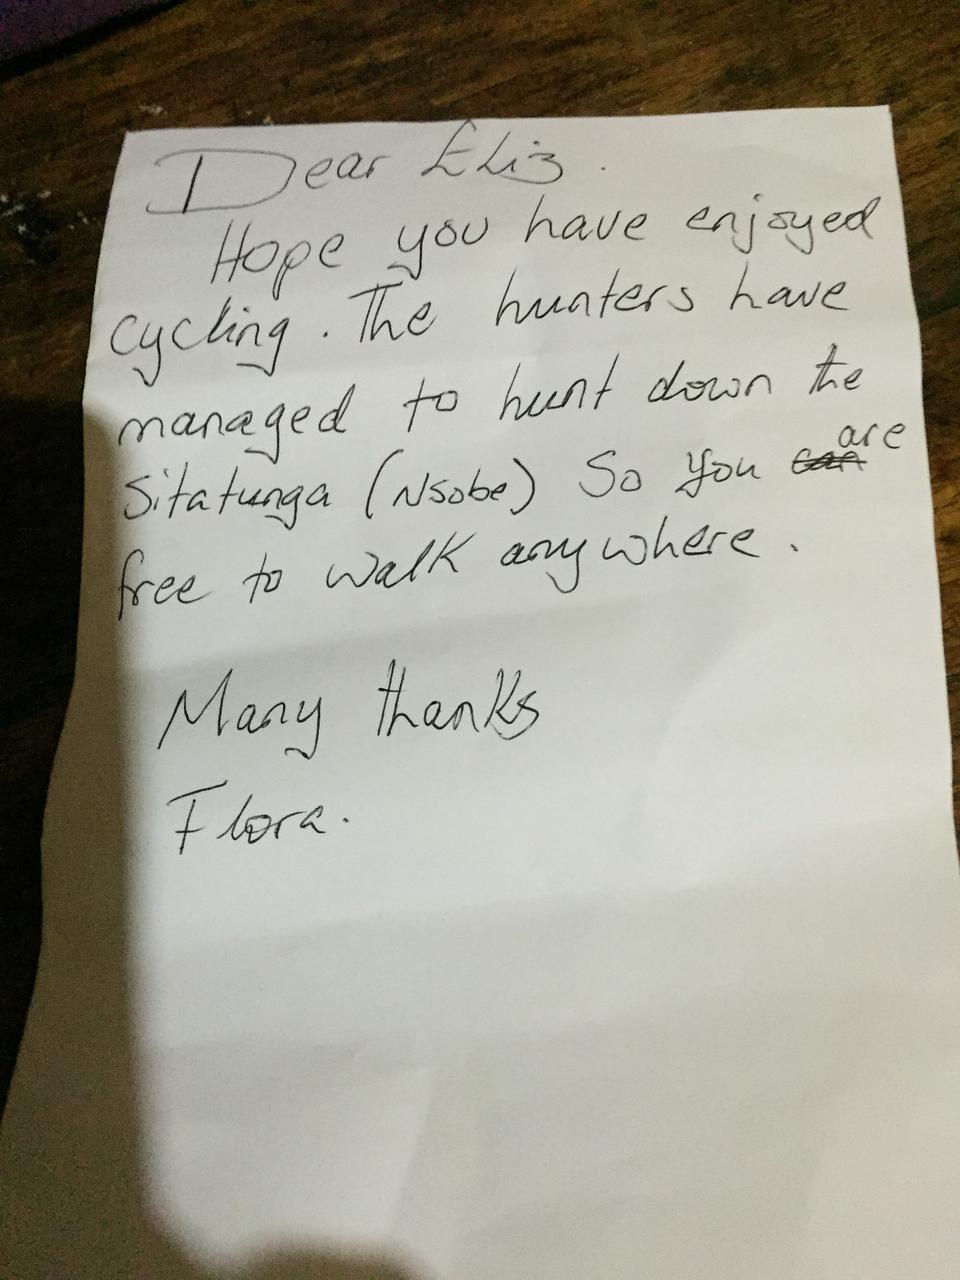 Dear Eliz.
Hope you have enjoyed
cycling. The hunters have
managed to hunt down the
Sitatunga (Nsobe) So you can are
free to walk anywhere.
Many thanks
Flora.